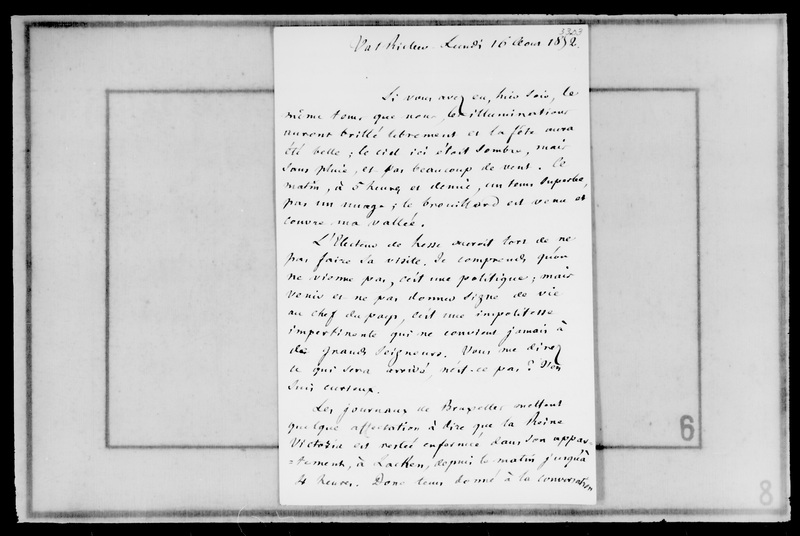 3707
Val Richer - Lundi 16 Août 1852.
Si vous avez eu, hier soir, le
même tems que nous, les illuminations
auront brillé librement et la fête aura
été belle ; le ciel ici était sombre, mais
sans pluie, et pas beaucoup de vent. Ce
matin, à 5 heures et demie, un tems superbe,
pas un nuage ; le brouillard est venu et
couvre ma vallée.
L'Electeur de Hesse auroit tort de ne
pas faire sa visite. Je comprends qu'on
ne vienne pas, c'est une politique ; mais
venir et ne pas donner signe de vie
au chef du pays, c'est une impolitesse
impertinente qui ne convient jamais à
de grands seigneurs. Vous me direz
ce qui sera arrivé, n'est-ce pas ? J'en
suis curieux.
Les journaux de Bruxelles mettent
quelque affectation à dire que la Reine
Victoria est restée enfermée dans son appar-
-tement, à Lacken, depuis le matin jusqu'à
4 heures. Donc tems donné à la conversation
6
8